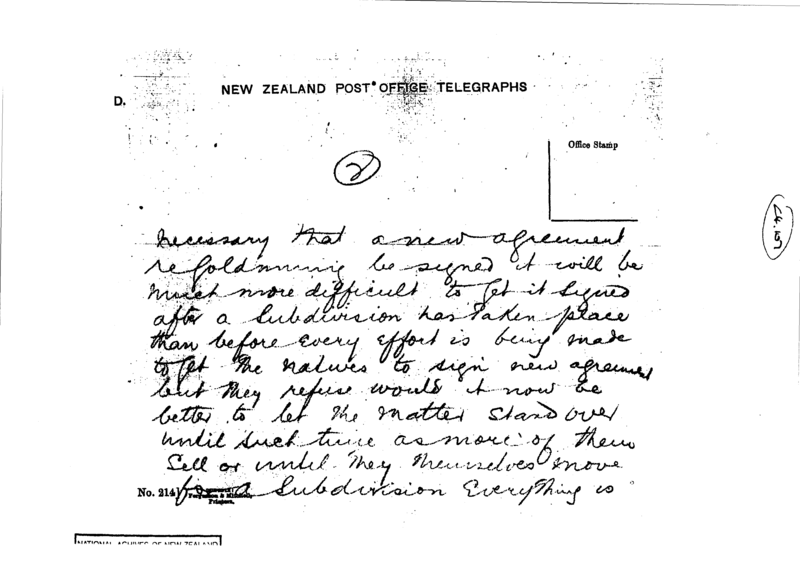 NEW ZEALAND POST OFFICE TELEGRAPHS
D.
Office Stamp
2
necessary that a new agreement
re goldmining be signed it will be
much more difficult to get it signed
after a Subdivision has taken place
than before every effort is being made
to get the natives to sign new agreement
but they refuse would it now be
better to let the matter stand over
until such time as more of them
Sell or until they themselves move
for a Subdivision Everything is
No. 214
NATIONAL ARCHIVES OF NEW ZEALAND